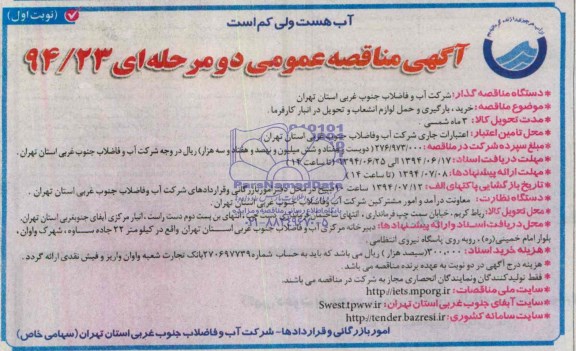 (نوبت اول)
آب هست ولی کم است
آگهی مناقصه عمومی دو مرحله ای ۹۴/۲۳
دستگاه مناقصه گذار: شرکت آب و فاضلاب جنوب غربی استان تهران
موضوع مناقصه: خرید، بارگیری و حمل لوازم انشعاب و تحویل در انبار کارفرما.
مدت تحویل کالا: ۳ ماه شمسی
محل تامین اعتبار: اعتبارات جاری شرکت آب وفاضلاب جنوب غربی استان تهران
مبلغ سپرده شرکت در مناقصه: ۲۷۶/۹۷۳/۰۰۰ (دویست هفتاد و شش میلیون و نهصد و هفتاد و سه هزار) ریال در وجه شرکت آب و فاضلاب جنوب غربی استان تهران.
مهلت دریافت اسناد: ۱۳۹۴/۰۶/۱۷ الی ۱۳۹۴/۰۶/۲۵ (تا ساعت
مهلت ارائه پیشنهادها: ۱۳۹۴/۰۷/۰۸ (تا ساعت ۱۴)
تاریخ بازگشایی پاکتهای الف: ۱۳۹۴/۰۷/۱۲ ساعت صبح در محل دفتر امور بازرگانی وقراردادهای شرکت آب وفاضلاب جنوب غربی استان تهران.
دستگاه نظارت: معاونت درآمد و امور مشترکین شرکت آب وفاضلاب جنوب غربی استان تهران.
محل تحویل کالا: رباط کریم، خیابان سمت چپ فرمانداری، انتهای بن بست دوم دست راست، انبار مرکزی آبفای جنوبغربی استان تهران.
محل دریافت اسناد وارائه پیشنهادها: دبیرخانه مرکزی شرکت آب وفاضلاب جنوب غربی استان تهران واقع در کیلومتر ۲۲ جاده ساوه، شهرک واوان، بلوار امام خمینی(ره)، روبه روی پاسگاه نیروی انتظامی.
هزینه خرید اسناد: ۳۰۰,۰۰۰ (سیصد هزار) ریال می باشد که باید به حساب شماره ۲۷۰۶۹۷۷۳۹ بانک تجارت شعبه واوان واریز و فیش نقدی ارائه گردد.
هزینه درج آگهی در دو نوبت به عهده برنده مناقصه می باشد.
فقط تولیدکنندگان ونمایندگان انحصاری مجاز به شرکت در مناقصه می باشند.
سایت ملی مناقصات: http://iets.mporg.ir
سایت آبفای جنوب غربی استان تهران: Swest.tpww.ir
سایت سامانه کشوری: http://tender.bazresi.ir
امور بازرگانی و قراردادها- شرکت آب و فاضلاب جنوب غربی استان تهران (سهامی خاص)